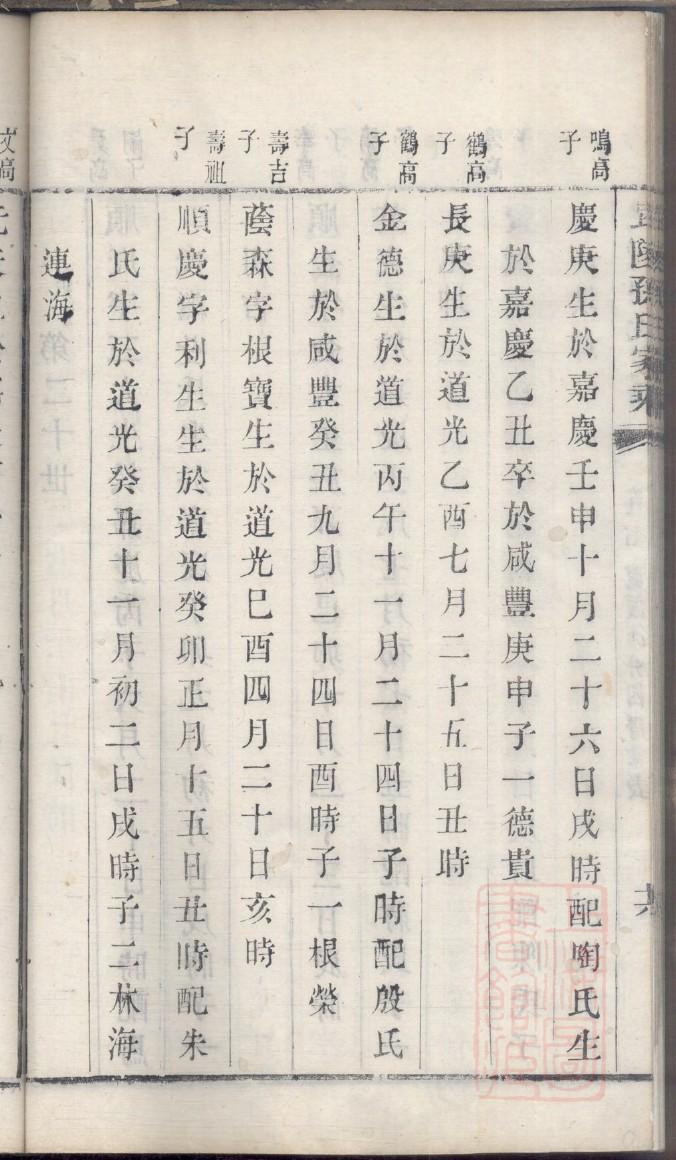 孫氏家乘
鳴高子
慶庚生於嘉慶壬申十月二十六日戌時配陶氏生
於嘉慶乙丑卒於咸豐庚申子一德貴
鶴高子
長庚生於道光乙酉七月二十五日丑時
鶴高子
金德生於道光丙午十一月二十四日子時配殷氏
生於咸豐癸丑九月二十四日酉時子一根榮
壽吉子
蔭森字根寶生於道光巳酉四月二十日亥時
壽祖子
順慶字利生生於道光癸卯正月十五日丑時配朱
氏生於道光癸丑十一月初二日戌時子二林海
連海
文高